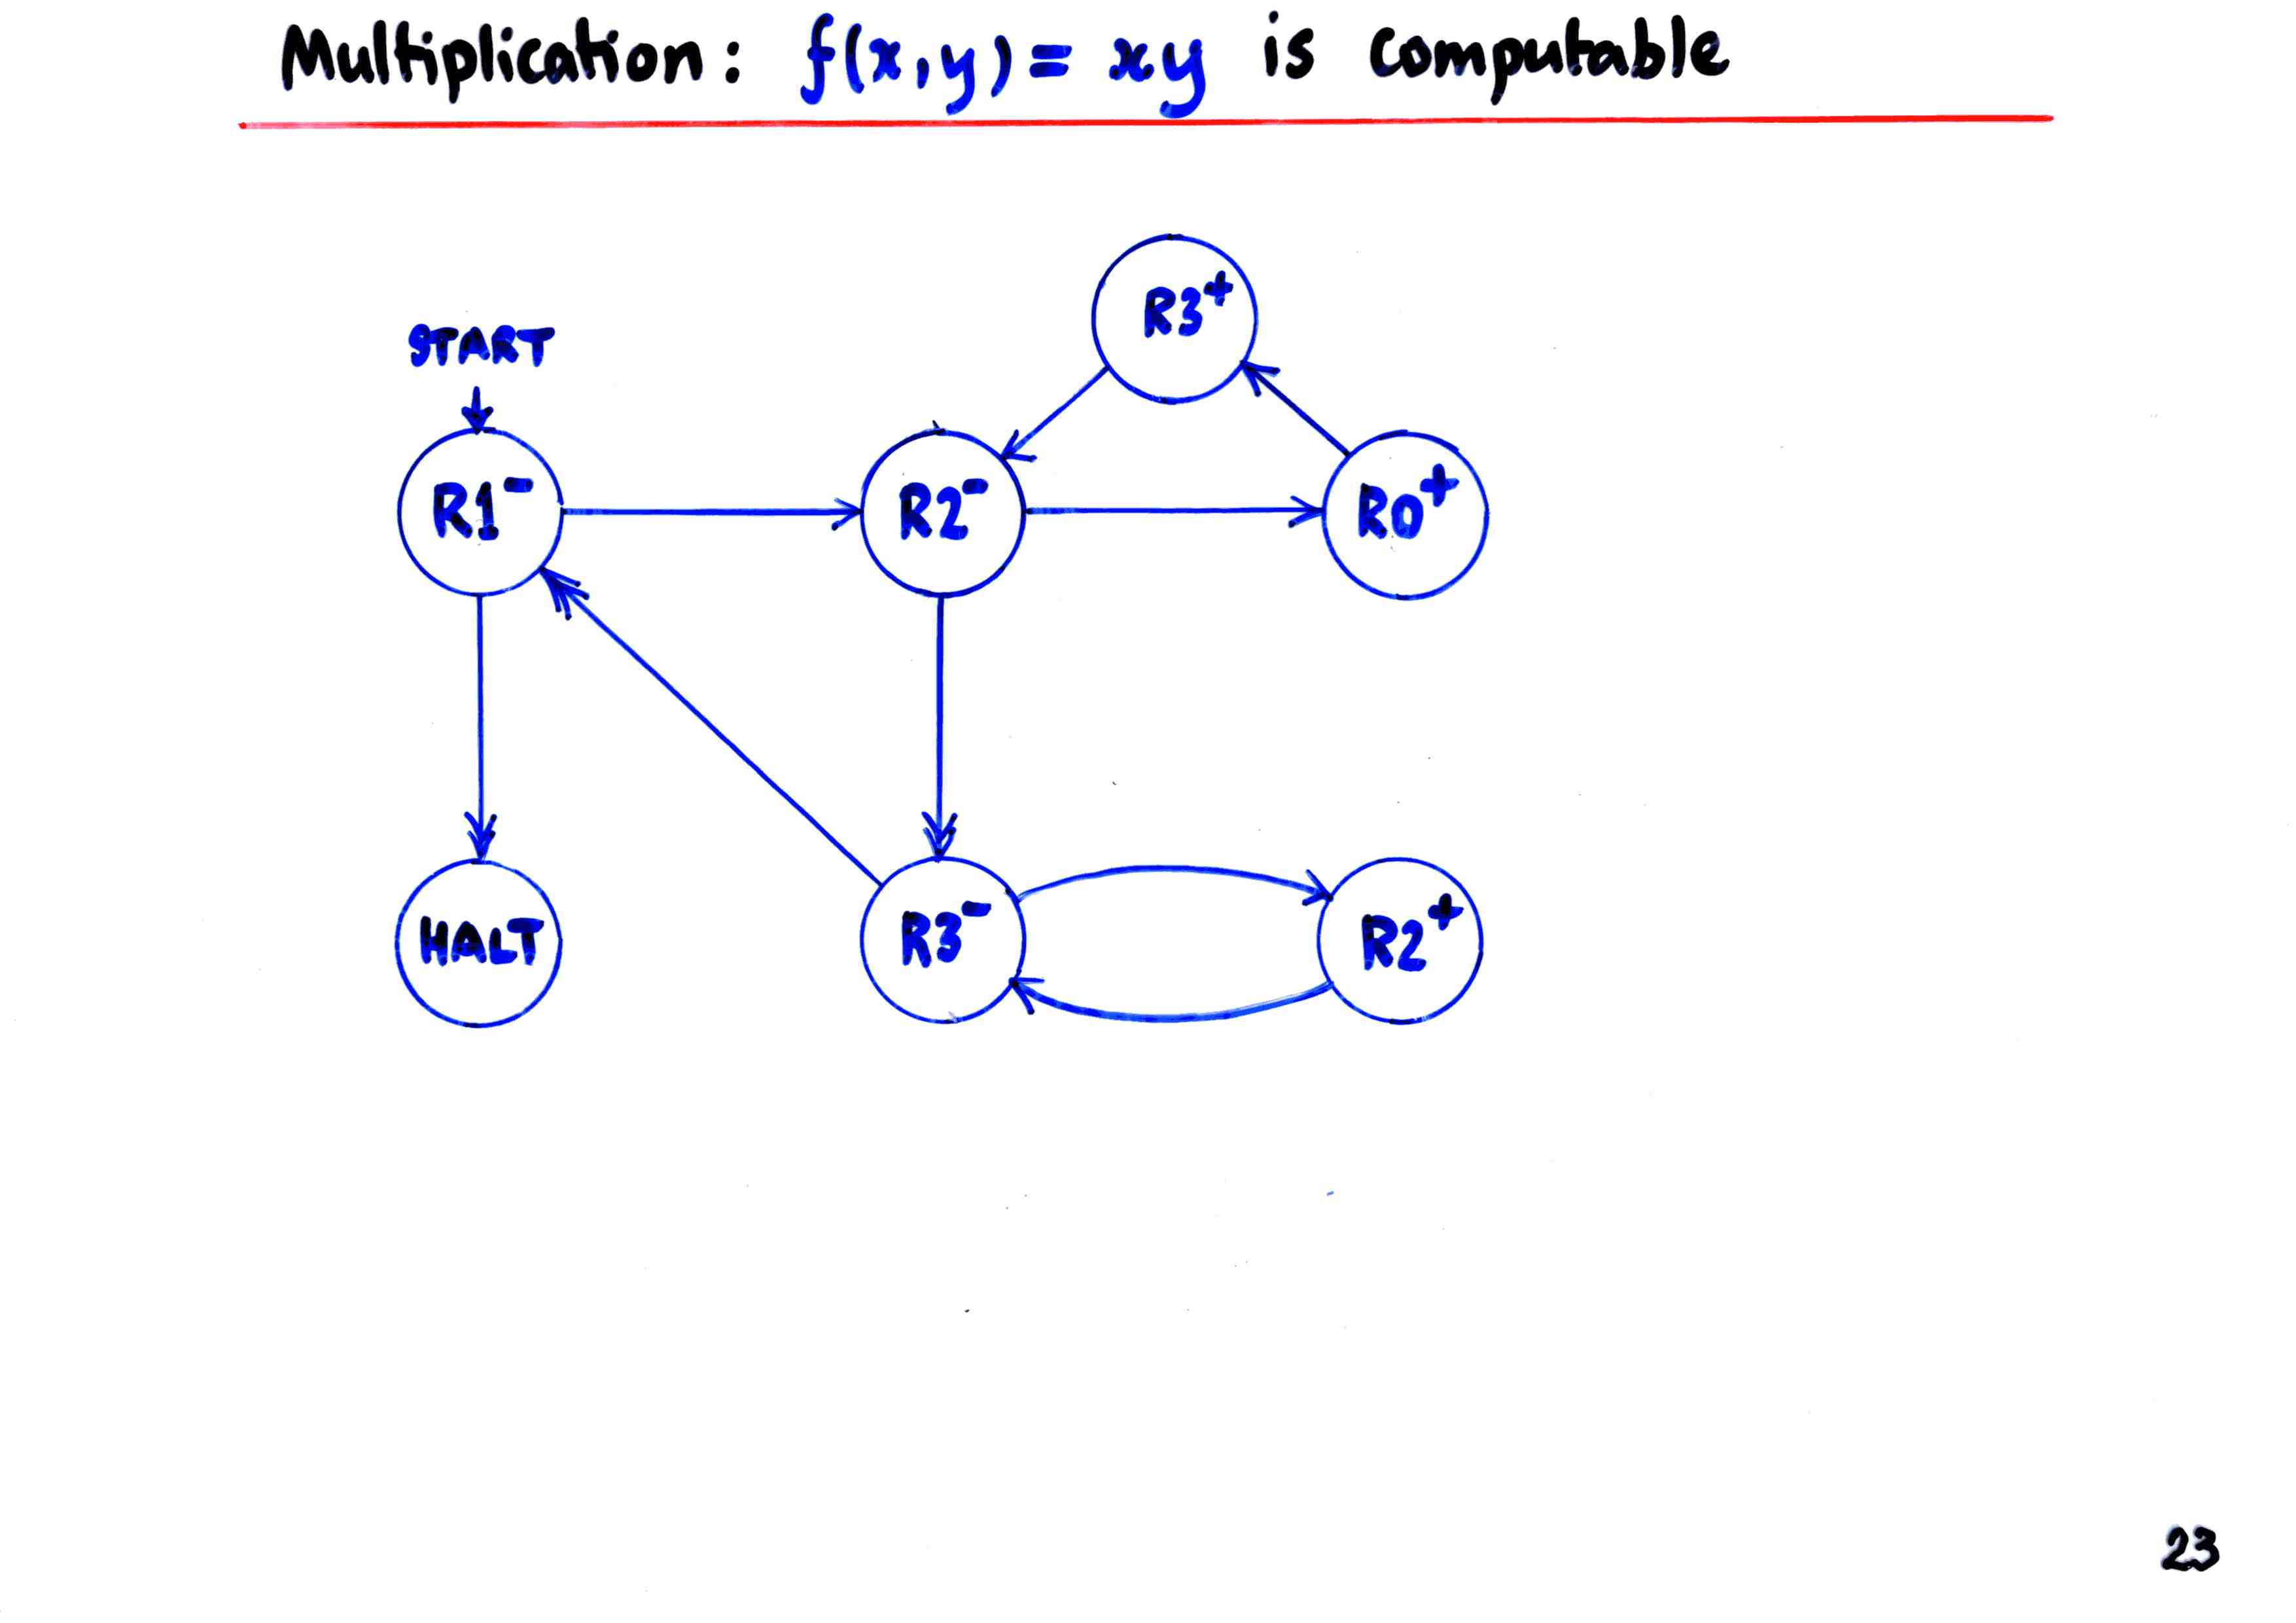 Multiplication: f(x,y) = xy is computable
R3⁺
START
R1⁻ R2⁻ R0⁺
HALT R3⁻ R2⁺
23